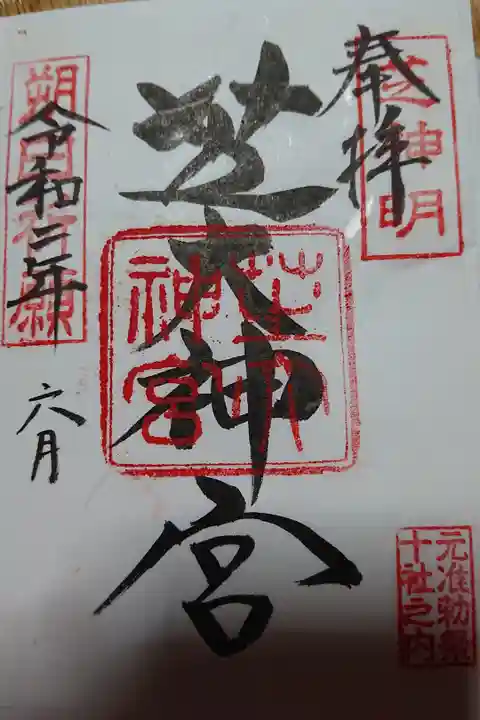 奉拝
芝神明
芝大神宮
芝大神宮
元准勅祭
十社之内
朔日祈願
令和二年
六月